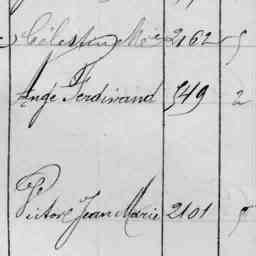 Célestin Mie 2162 5
Ange Ferdinand 749 2
Victore Jean Marie 2101